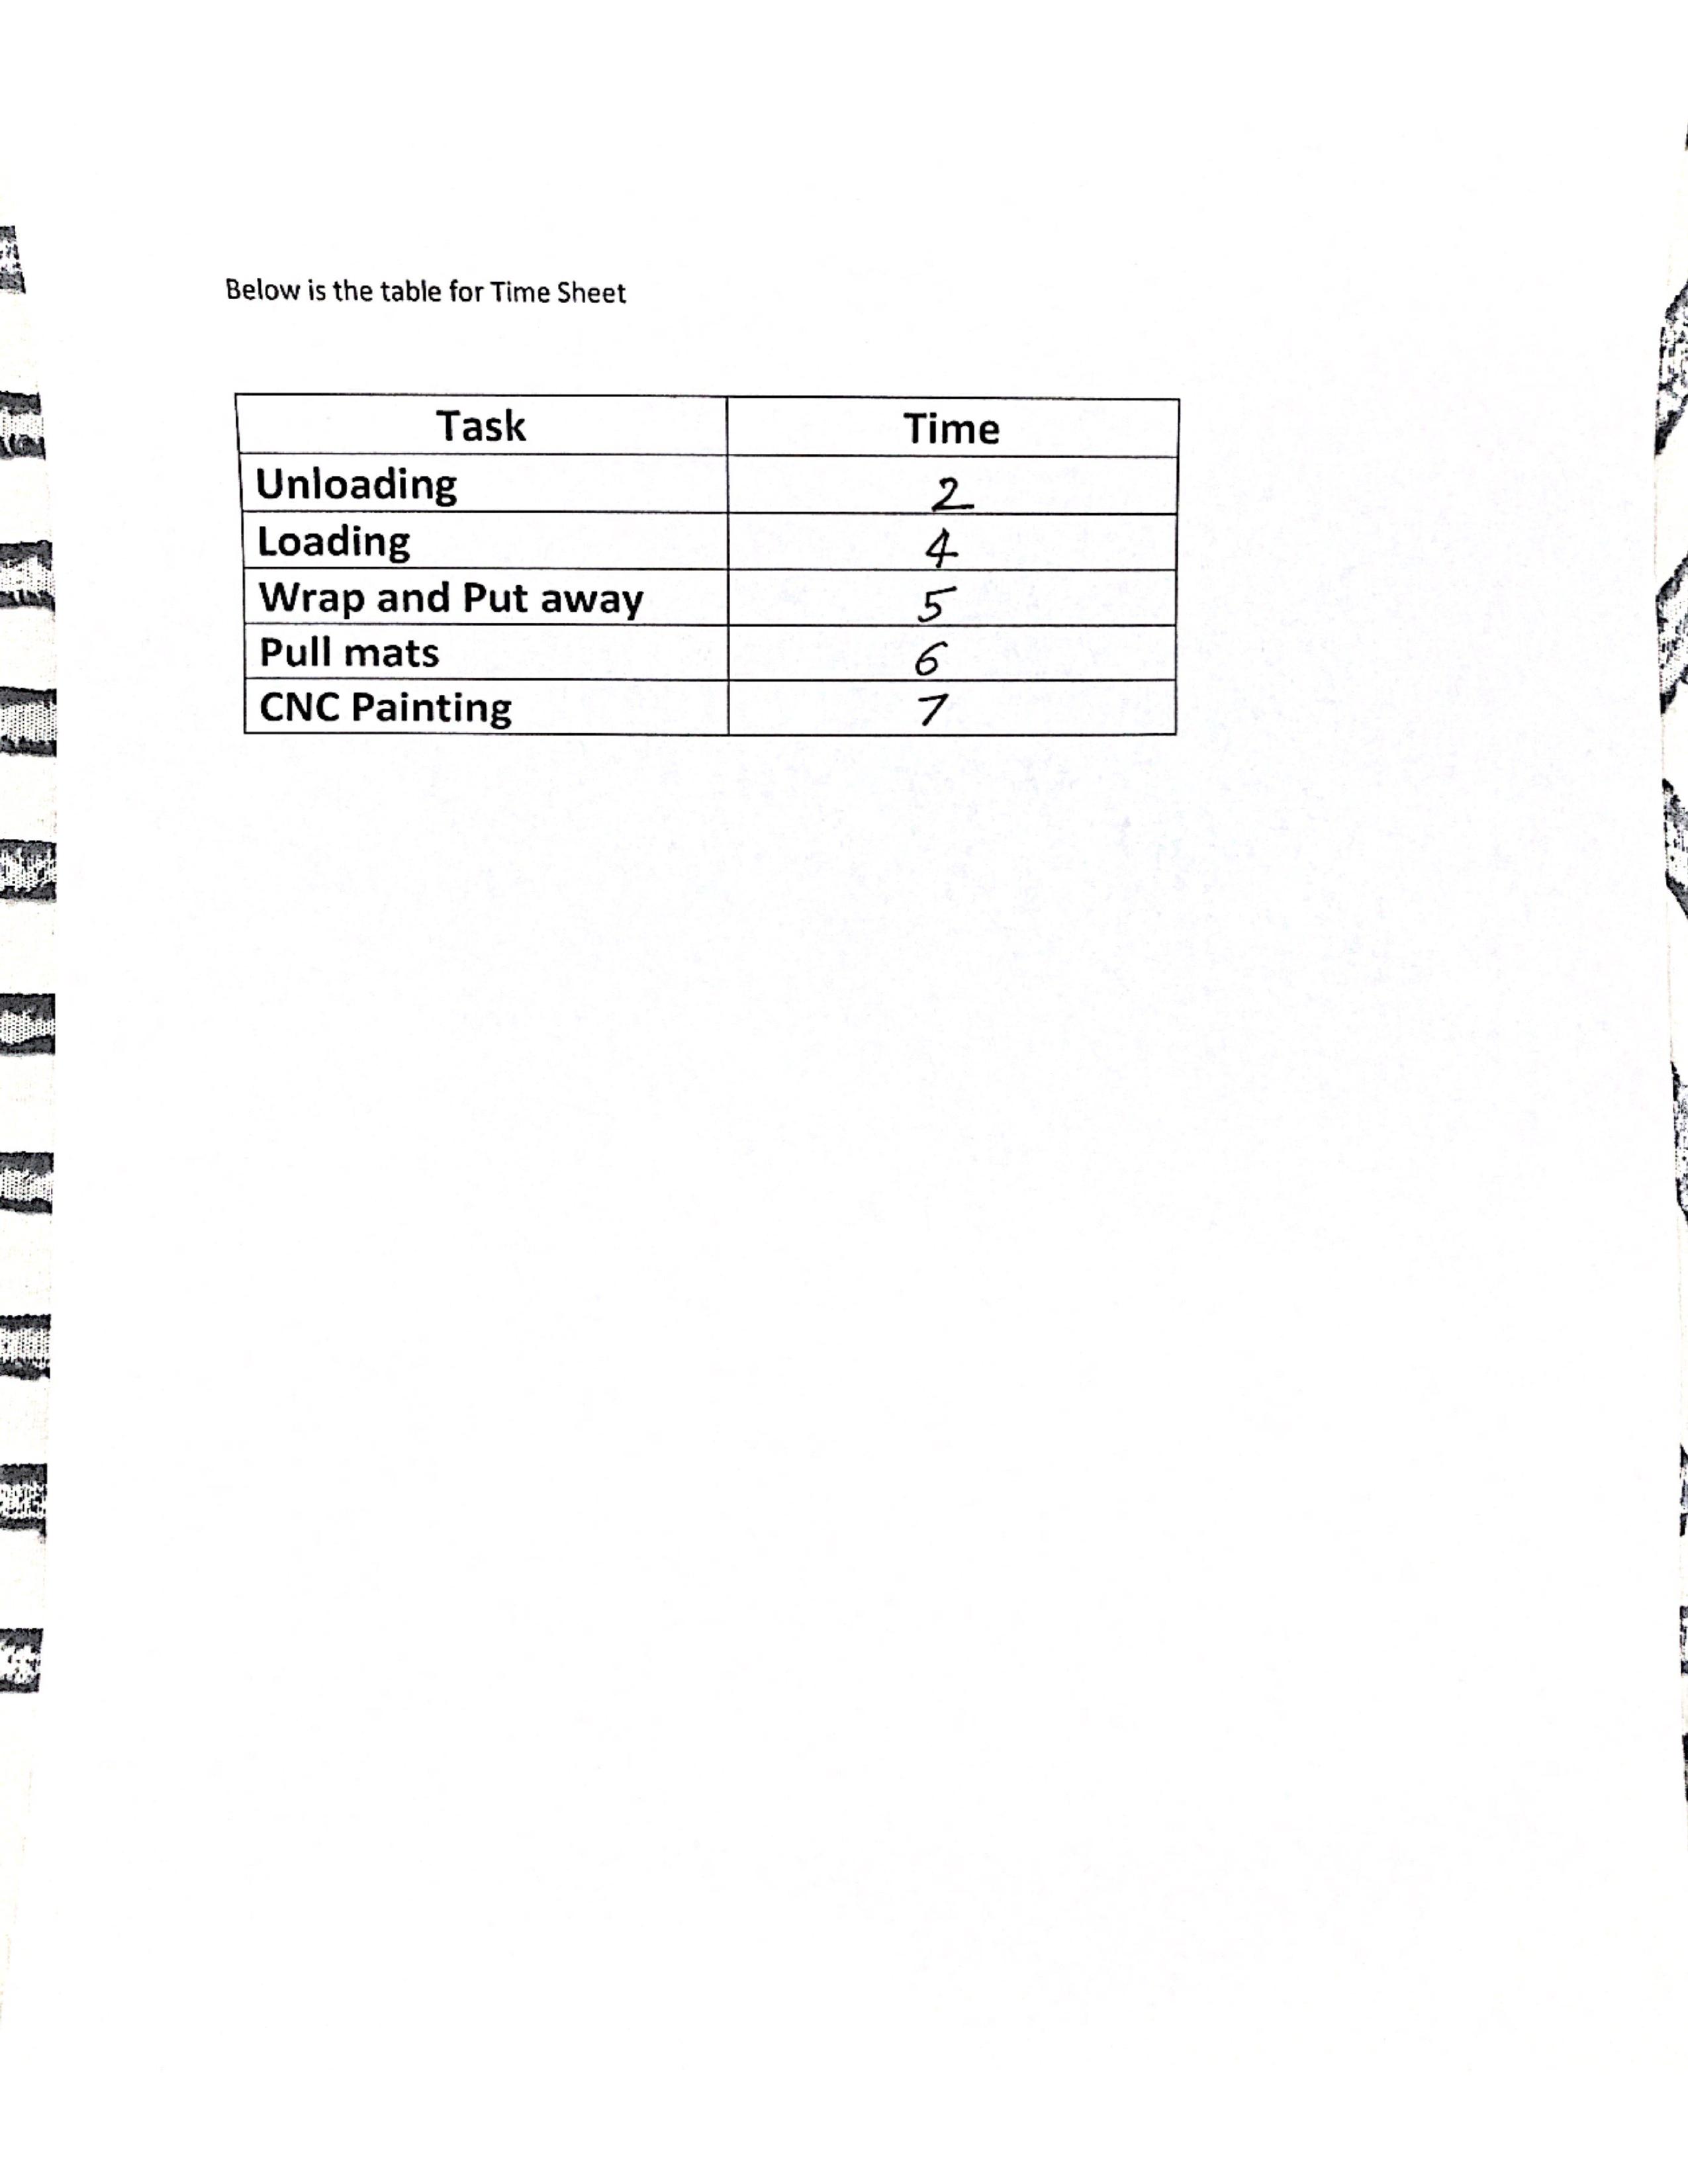 Below is the table for Time Sheet
Task Time
Unloading 2
Loading 4
Wrap and Put away 5
Pull mats 6
CNC Painting 7